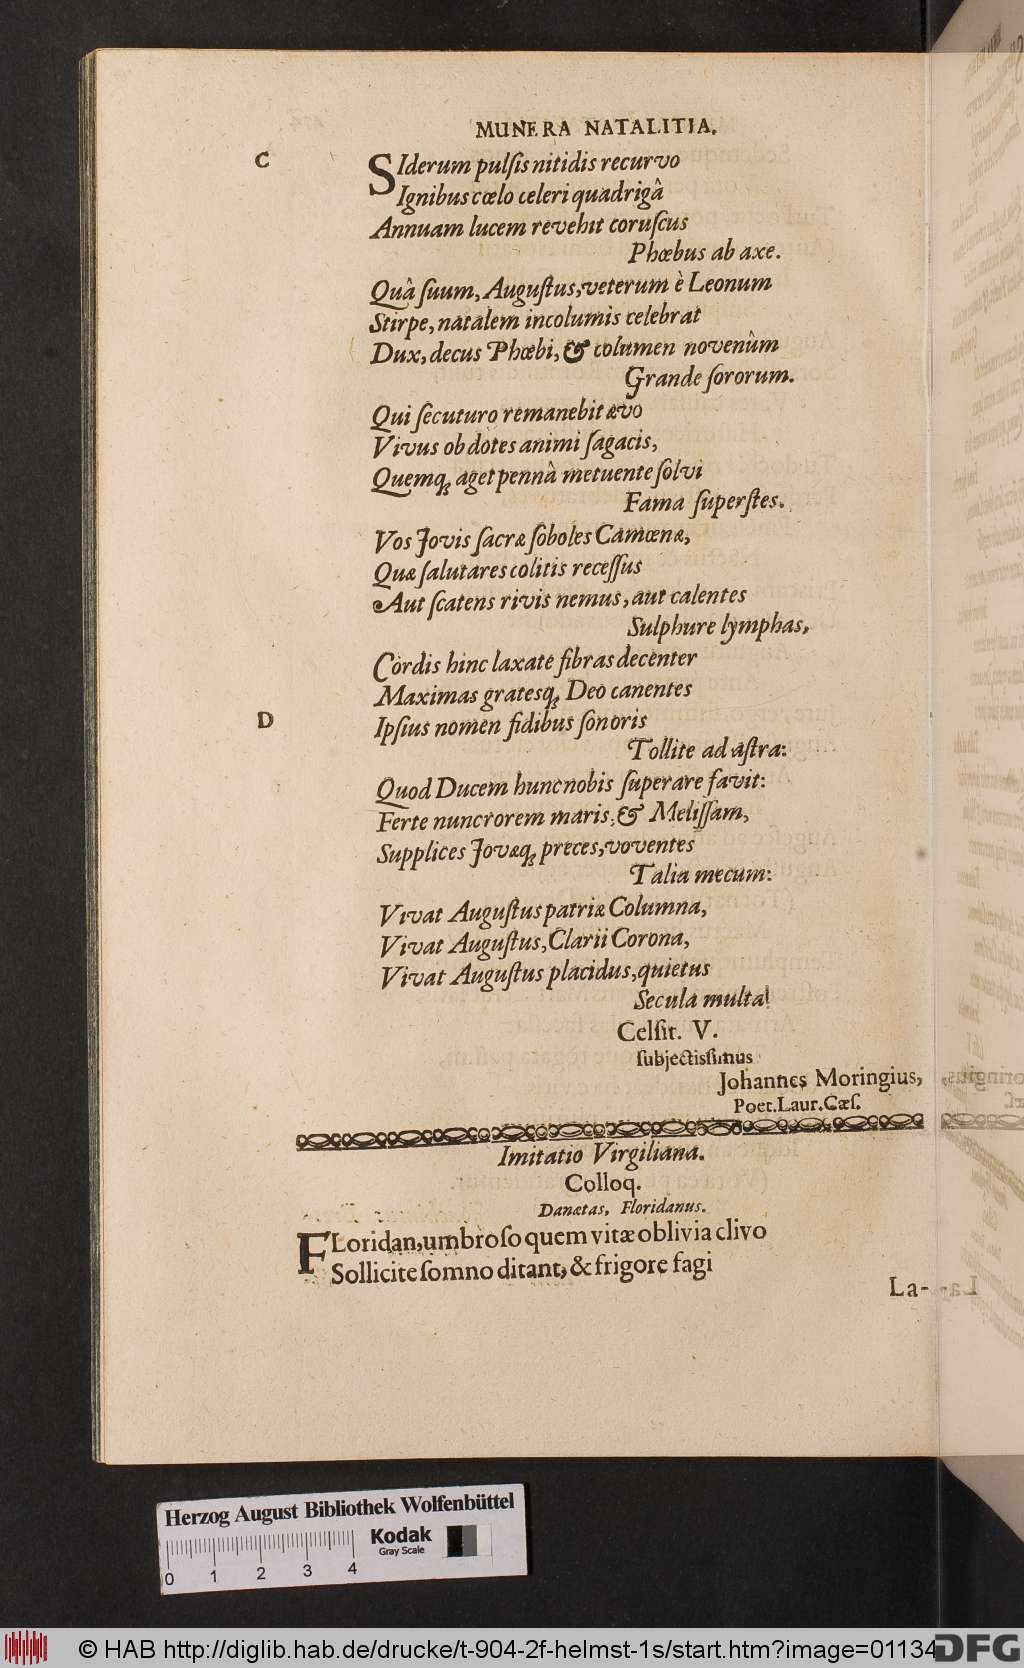 MUNERA NATALITIA.
C
SIderum pulſis nitidis recurvo
Ignibus cœlo celeri quadrigâ
Annuam lucem revehit coruſcus
Phœbus ab axe.
Quâ ſuum, Auguſtus, veterum è Leonum
Stirpe, natalem incolumis celebrat
Dux, decus Phœbi, & columen novenûm
Grande ſororum.
Qui ſecuturo remanebit ævo
Vivus ob dotes animi ſagacis,
Quemq; aget pennâ metuente ſolvi
Fama ſuperſtes.
Vos Jovis ſacræ ſoboles Camœnæ,
Quæ ſalutares colitis receſſus
Aut ſcatens rivis nemus, aut calentes
Sulphure lymphas,
Cordis hinc laxate fibras decenter
Maximas gratesq; Deo canentes
D
Ipſius nomen fidibus ſonoris
Tollite ad aſtra:
Quod Ducem hunc nobis ſuperare favit:
Ferte nunc rorem maris, & Meliſſam,
Supplices Jovæq; preces, voventes
Talia mecum:
Vivat Auguſtus patriæ Columna,
Vivat Auguſtus, Clarii Corona,
Vivat Auguſtus placidus, quietus
Secula multa!
Celſit. V.
ſubjectiſſimus
Johannes Moringius,
Poet. Laur. Cæſ.
Imitatio Virgiliana.
Colloq.
Danætas, Floridanus.
FLoridan, umbroſo quem vitæ oblivia clivo
Sollicite ſomno ditant, & frigore fagi
La-
Herzog August Bibliothek Wolfenbüttel
Kodak
Gray Scale
0 1 2 3 4
© HAB http://diglib.hab.de/drucke/t-904-2f-helmst-1s/start.htm?image=01134
DFG